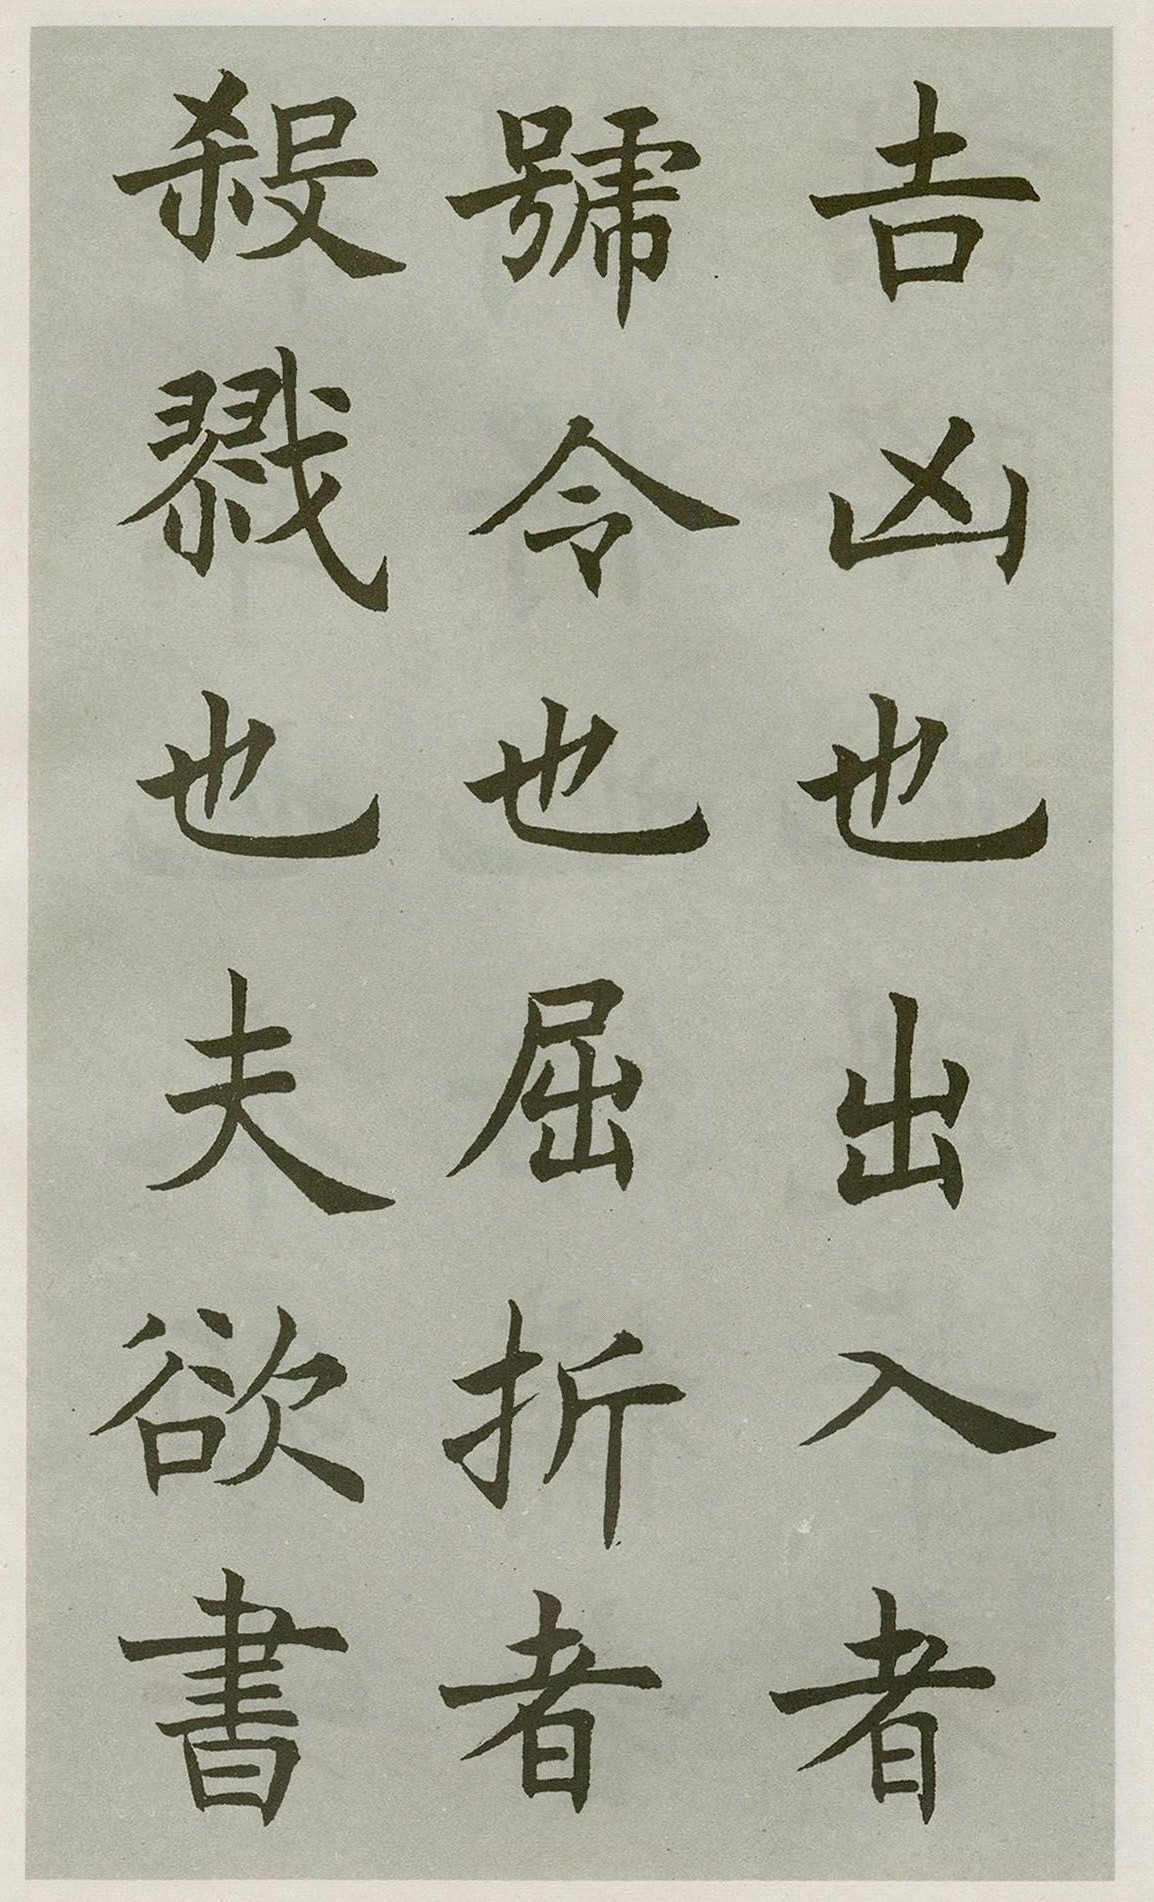 吉凶也出入者
號令也屈折者
殺戮也夫欲書